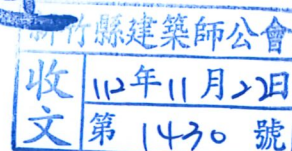 新竹縣建築師公會
收文
112年11月22日
第 1430 號